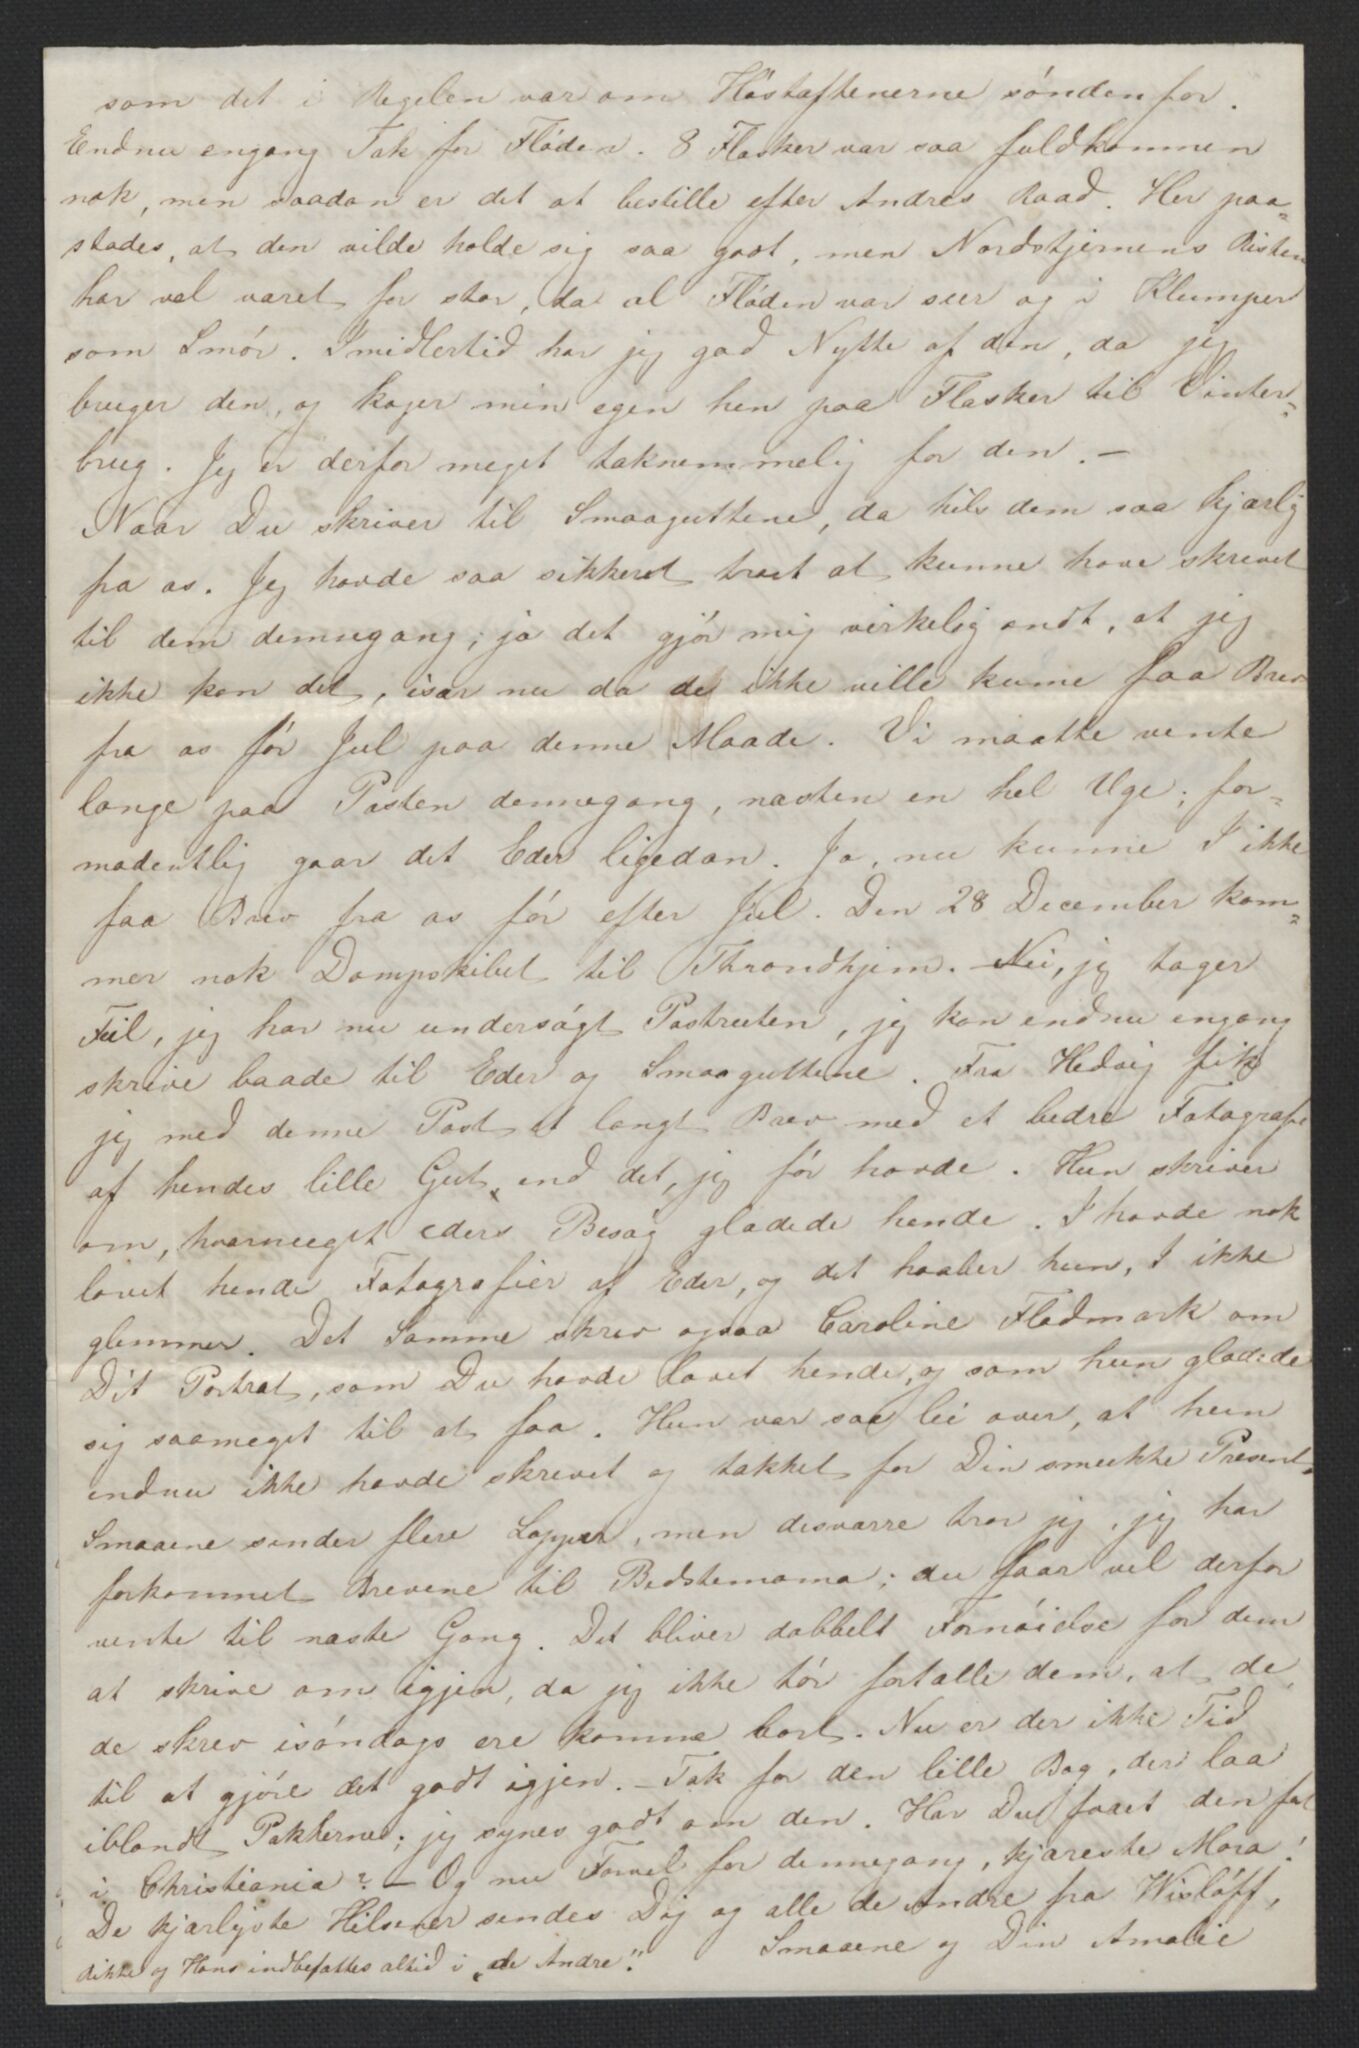 som det i Regelen var om Høstaftenerne søndenfor.
Endnu engang Tak for Fløden. 8 Flasker var saa fuldkommen
nok, men saadan er det at bestille efter Andres Raad. Her paa-
stodes, at den vilde holde sig saa godt, men Nordstjernens Risten
har vel været for stor, da al Fløden var suur og i Klumper
som Smør. Imidlertid har jeg god Nytte af den, da jeg
bruger den, og koger min egen hen paa Flasker til Vinter-
brug. Jeg er derfor meget taknemmelig for den. —
Naar Du skriver til Smaaguttene, da hils dem saa kjærlig
fra os. Jeg havde saa sikkert troet at kunne have skrevet
til dem dennegang; ja det gjør mig virkelig ondt, at jeg
ikke kan det, især nu da de ikke ville kunne faa Brev
fra os før Jul paa denne Maade. Vi maatte vente
længe paa Posten dennegang, næsten en hel Uge; for-
modentlig gaar det Eder ligedan. Ja, nu kunne I ikke
faa Brev fra os før efter Jul. Den 28 December kom-
mer nok Dampskibet til Throndhjem. – Nei, jeg tager
Feil, jeg har nu undersøgt Postruten, jeg kan endnu engang
skrive baade til Eder og Smaaguttene. Fra Hedvig fik
jeg med denne Post et langt Brev med et bedre Fotografi
af hendes lille Gut, end det, jeg før havde. Hun skriver
om, hvormeget eders Besøg glædede hende. I havde nok
lovet hende Fotografier af Eder, og det haaber hun, I ikke
glemmer. Det Samme skrev ogsaa Caroline Flodmark om
Dit Portræt, som Du havde lovet hende, og som hun glædede
sig saameget til at faa. Hun var saa lei over, at hun
endnu ikke havde skrevet og takket for Din smukke Present.
Smaaene sender flere Lapper, men desværre tror jeg, jeg har
forkommet Brevene til Bedstemama; du faar vel derfor
vente til næste Gang. Det bliver dobbelt Fornøielse for dem
at skrive om igjen, da jeg ikke tør fortælle dem, at de,
de skrev isøndags ere komne bort. Nu er der ikke Tid
til at gjøre det godt igjen. – Tak for den lille Bog, der laa
iblandt Pakkerne; jeg synes godt om den. Har Du faaet den fat
i Christiania? – Og nu Farvel for dennegang, kjæreste Mora!
De kjærligste Hilsener sendes Dig og alle de Andre fra Wisløff,
Smaaene og Din Amalie
Rikke og Hans indbefattes altid i „de Andre".